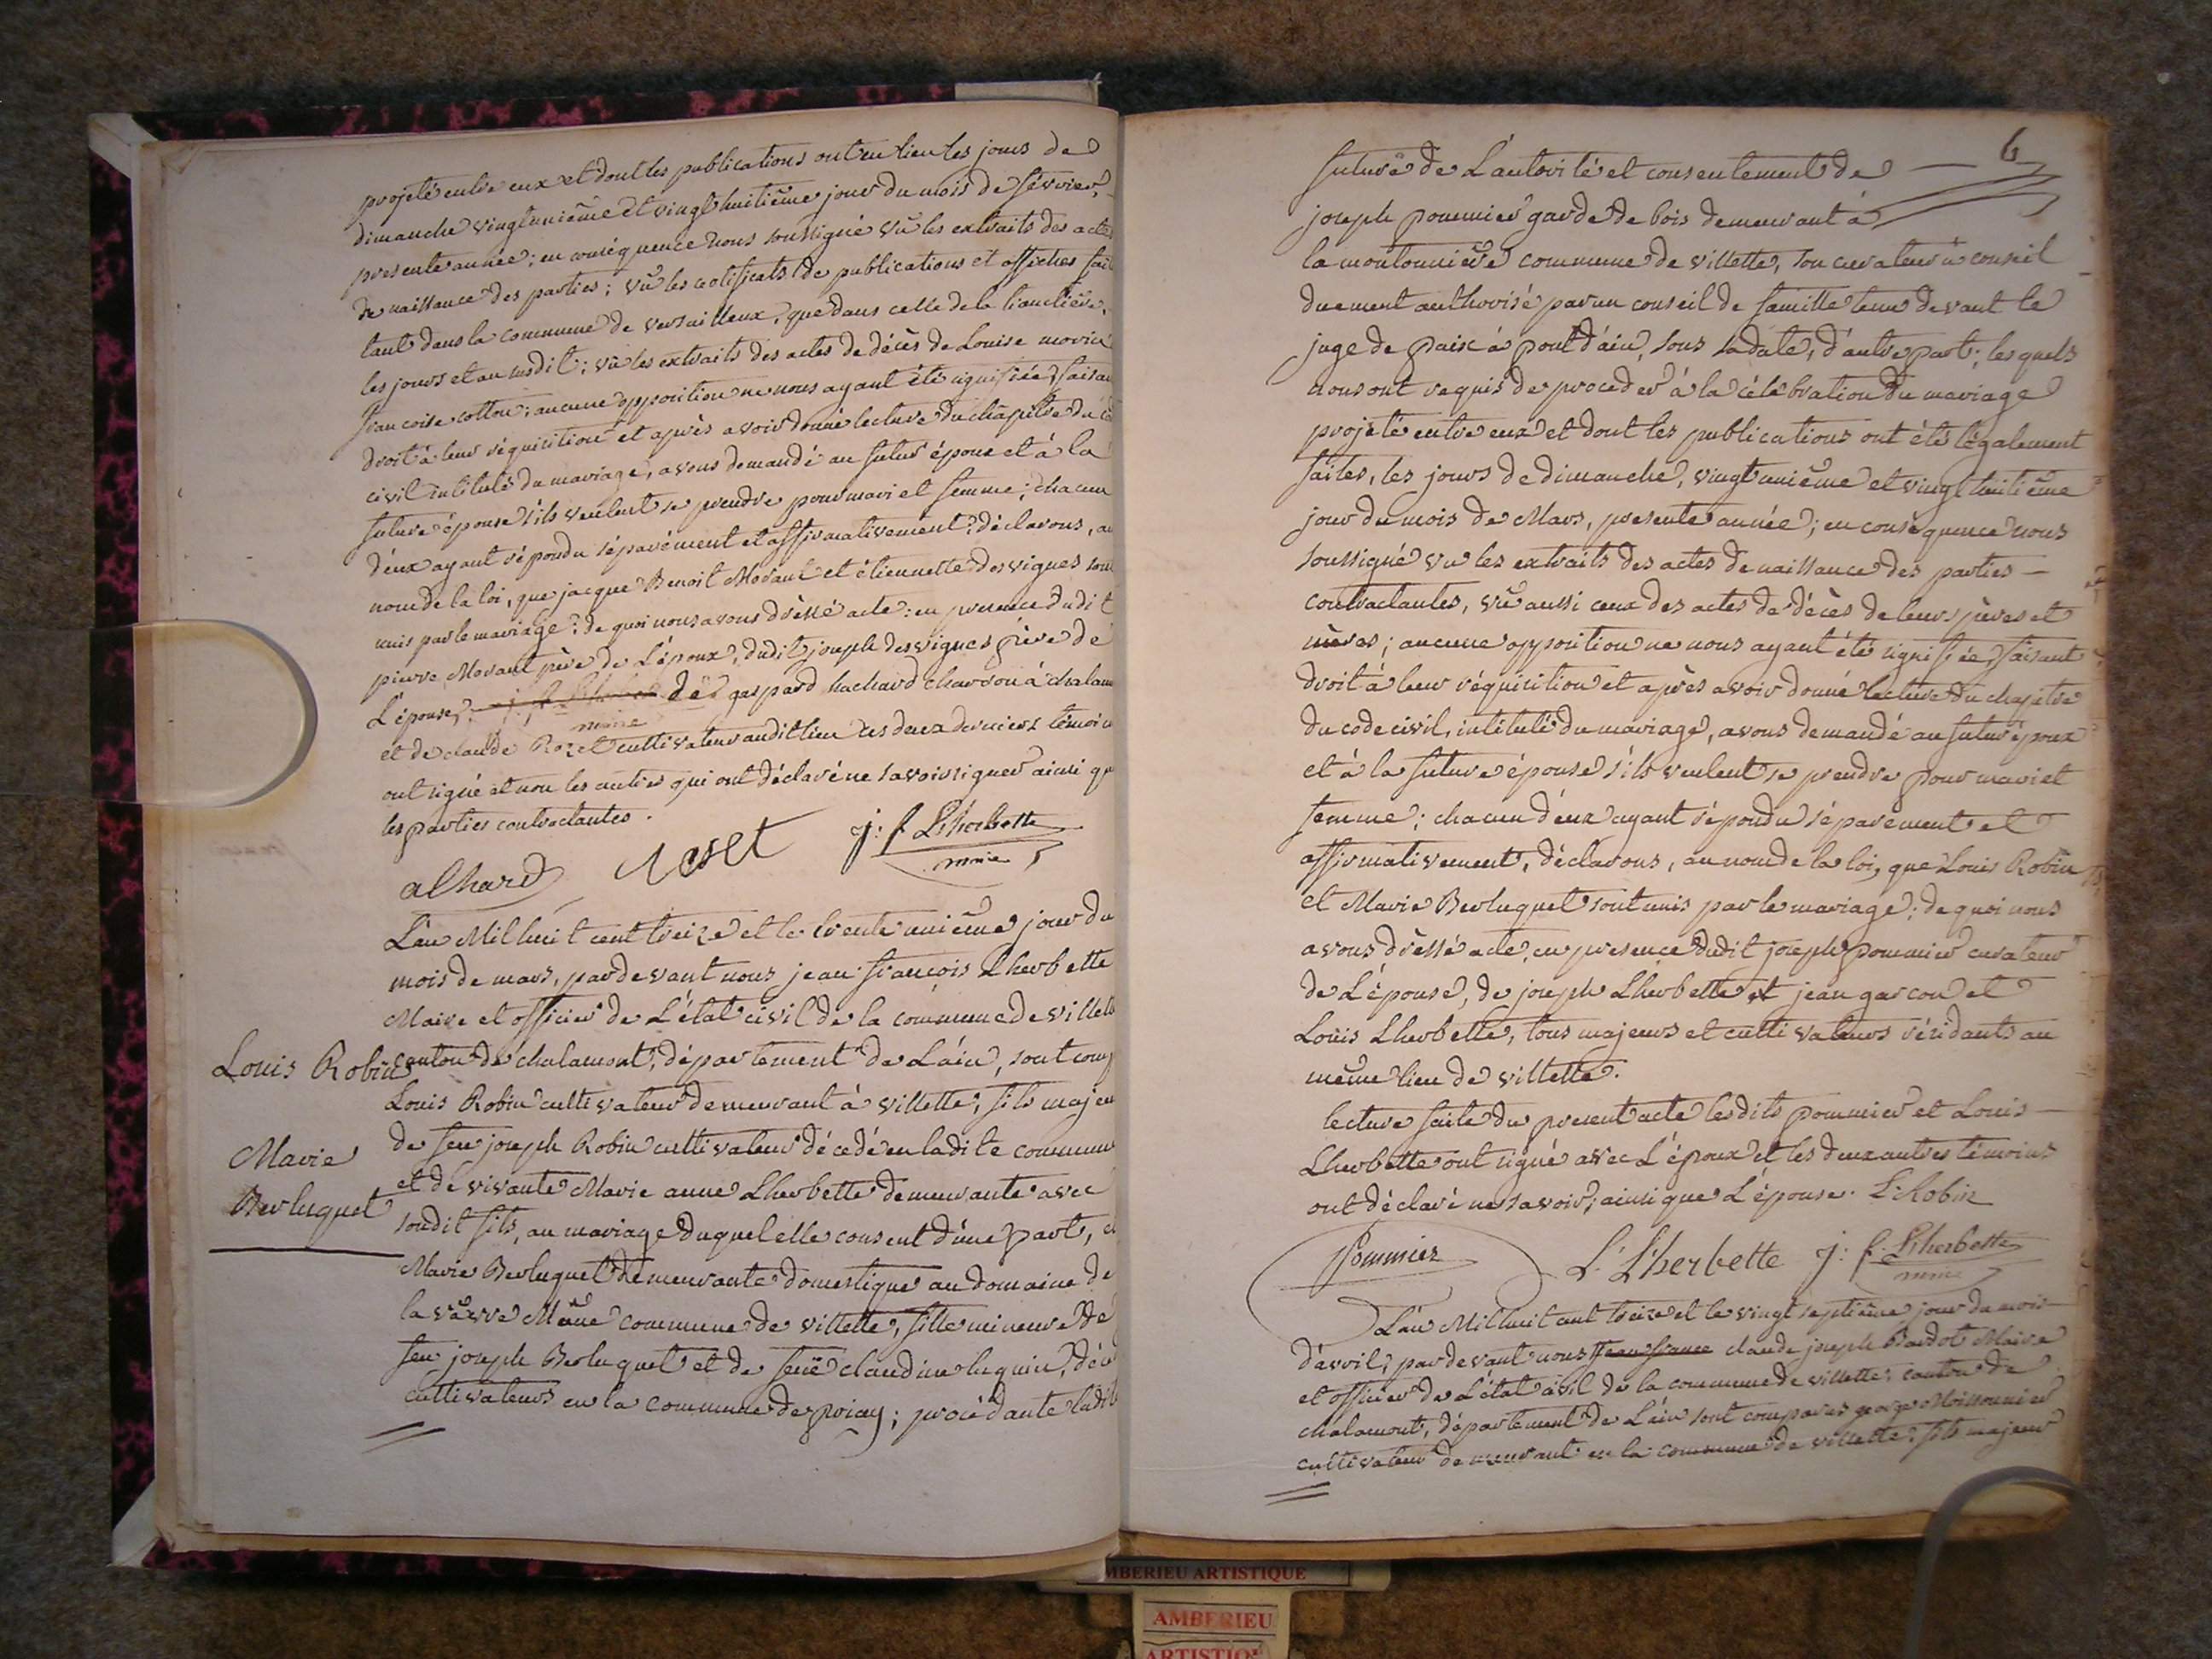 projeté entre eux et dont les publications ont eu lieu les jours de
dimanche vingt unième et vingt huitième jour du mois de février,
presente année; en conséquence nous soussigné vû les extraits des actes
de naissance des parties; vû les certificats de publications et affiches fai
tant dans la commune de versailleux, que dans celle de la tranclière,
les jours et an susdit; vû les extraits des actes de décès de Louise
francoise cotton; aucune opposition ne nous ayant été signifiée, faisan
droit à leur réquisition et après avoir donné lecture du chapitre du
civil intitulé du mariage, avons demandé au futur époux et à la
future épouse s'ils veulent se prendre pour mari et femme; chacun
d'eux ayant répondu séparément et affirmativement; déclarons, au
nom de la loi, que jacque Benoit Morant et étiennette desvignes sont
unis par le mariage; de quoi nous avons dréssé acte: en presence dudit
pierre Morant père de L'époux, dudit joseph desvignes père de
L'épouse, de gaspard hachard charron à chalam
et de claude Rozet cultivateur audit lieu ces deux derniers témoin
ont signé et non les autres qui ont déclaré ne savoir signer ainsi qu
les parties contractantes.
alhard Roset j: f. Lherbette
maire
L'an Mil huit cent treize et le trente unième jour du
mois de mars, pardevant nous jean françois Lherbette
Maire et officier de L'état civil de la commune de villett
Louis Robin canton de chalamont, département de L'ain, sont comp
Louis Robin cultivateur demeurant à villette, fils majeu
Marie de feu joseph Robin cultivateur décedé en ladite commune
et de vivante Marie anne Lherbette demeurante avec
Berluquet
sondit fils, au mariage duquel elle consent d'une part, et
Marie Berluquet demeurante domestique au domaine de
la commune de villette, fille mineure de
feu joseph Berluquet et de feuë claudine luquin,
cultivateurs en la commune de priay; procédante ladit
6
future de L'autorité et consentement de
joseph pommier garde de bois demeurant à
la moutonnière commune de villette, son curateur à conseil
duement authorisé par un conseil de famille tenu devant le
juge de paix à pont d'ain, sous sa date, d'autre part; lesquels
nous ont requis de proceder à la célébration du mariage
projeté entre eux et dont les publications ont été légalement
faites, les jours de dimanche, vingt unième et vingt huitième
jour du mois de Mars, presente année; en conséquence nous
soussigné vu les extraits des actes de naissance des parties
contractantes, vû aussi ceux des actes de décès de leurs pères et
mères; aucune opposition ne nous ayant été signifiée, faisant
droit à leur réquisition et après avoir donné lecture du chapitre
du code civil, intitulé du mariage, avons demandé au futur époux
et à la future épouse s'ils veulent se prendre pour mari et
femme; chacun d'eux ayant répondu séparement et
affirmativement, déclarons, au nom de la loi, que Louis Robin
et Marie Berluquet sont unis par le mariage; de quoi nous
avons dréssé acte, en presence dudit joseph pommier curateur
de L'épouse, de joseph Lherbette et jean garcon et
Louis Lherbette, tous majeurs et cultivateurs résidants au
même lieu de villette.
lecture faite du present acte lesdits pommier et Louis
Lherbette ont signé avec L'époux et les deux autres témoins
ont déclaré ne savoir, ainsi que L'épouse. L. Robin
Pommier L. Lherbette j: f. Lherbette
maire
L'an Mil huit cent treize et le vingt septième jour du mois
d'avril, pardevant nous jean france claude joseph Bardot Maire
et officier de L'état civil de la commune de villette, canton de
chalamont, département de L'ain sont comparus george Moissonnier
cultivateur demeurant en la commune de villette, fils majeur
MBERIEU ARTISTIQUE
AMBERIEU
ARTISTIQU